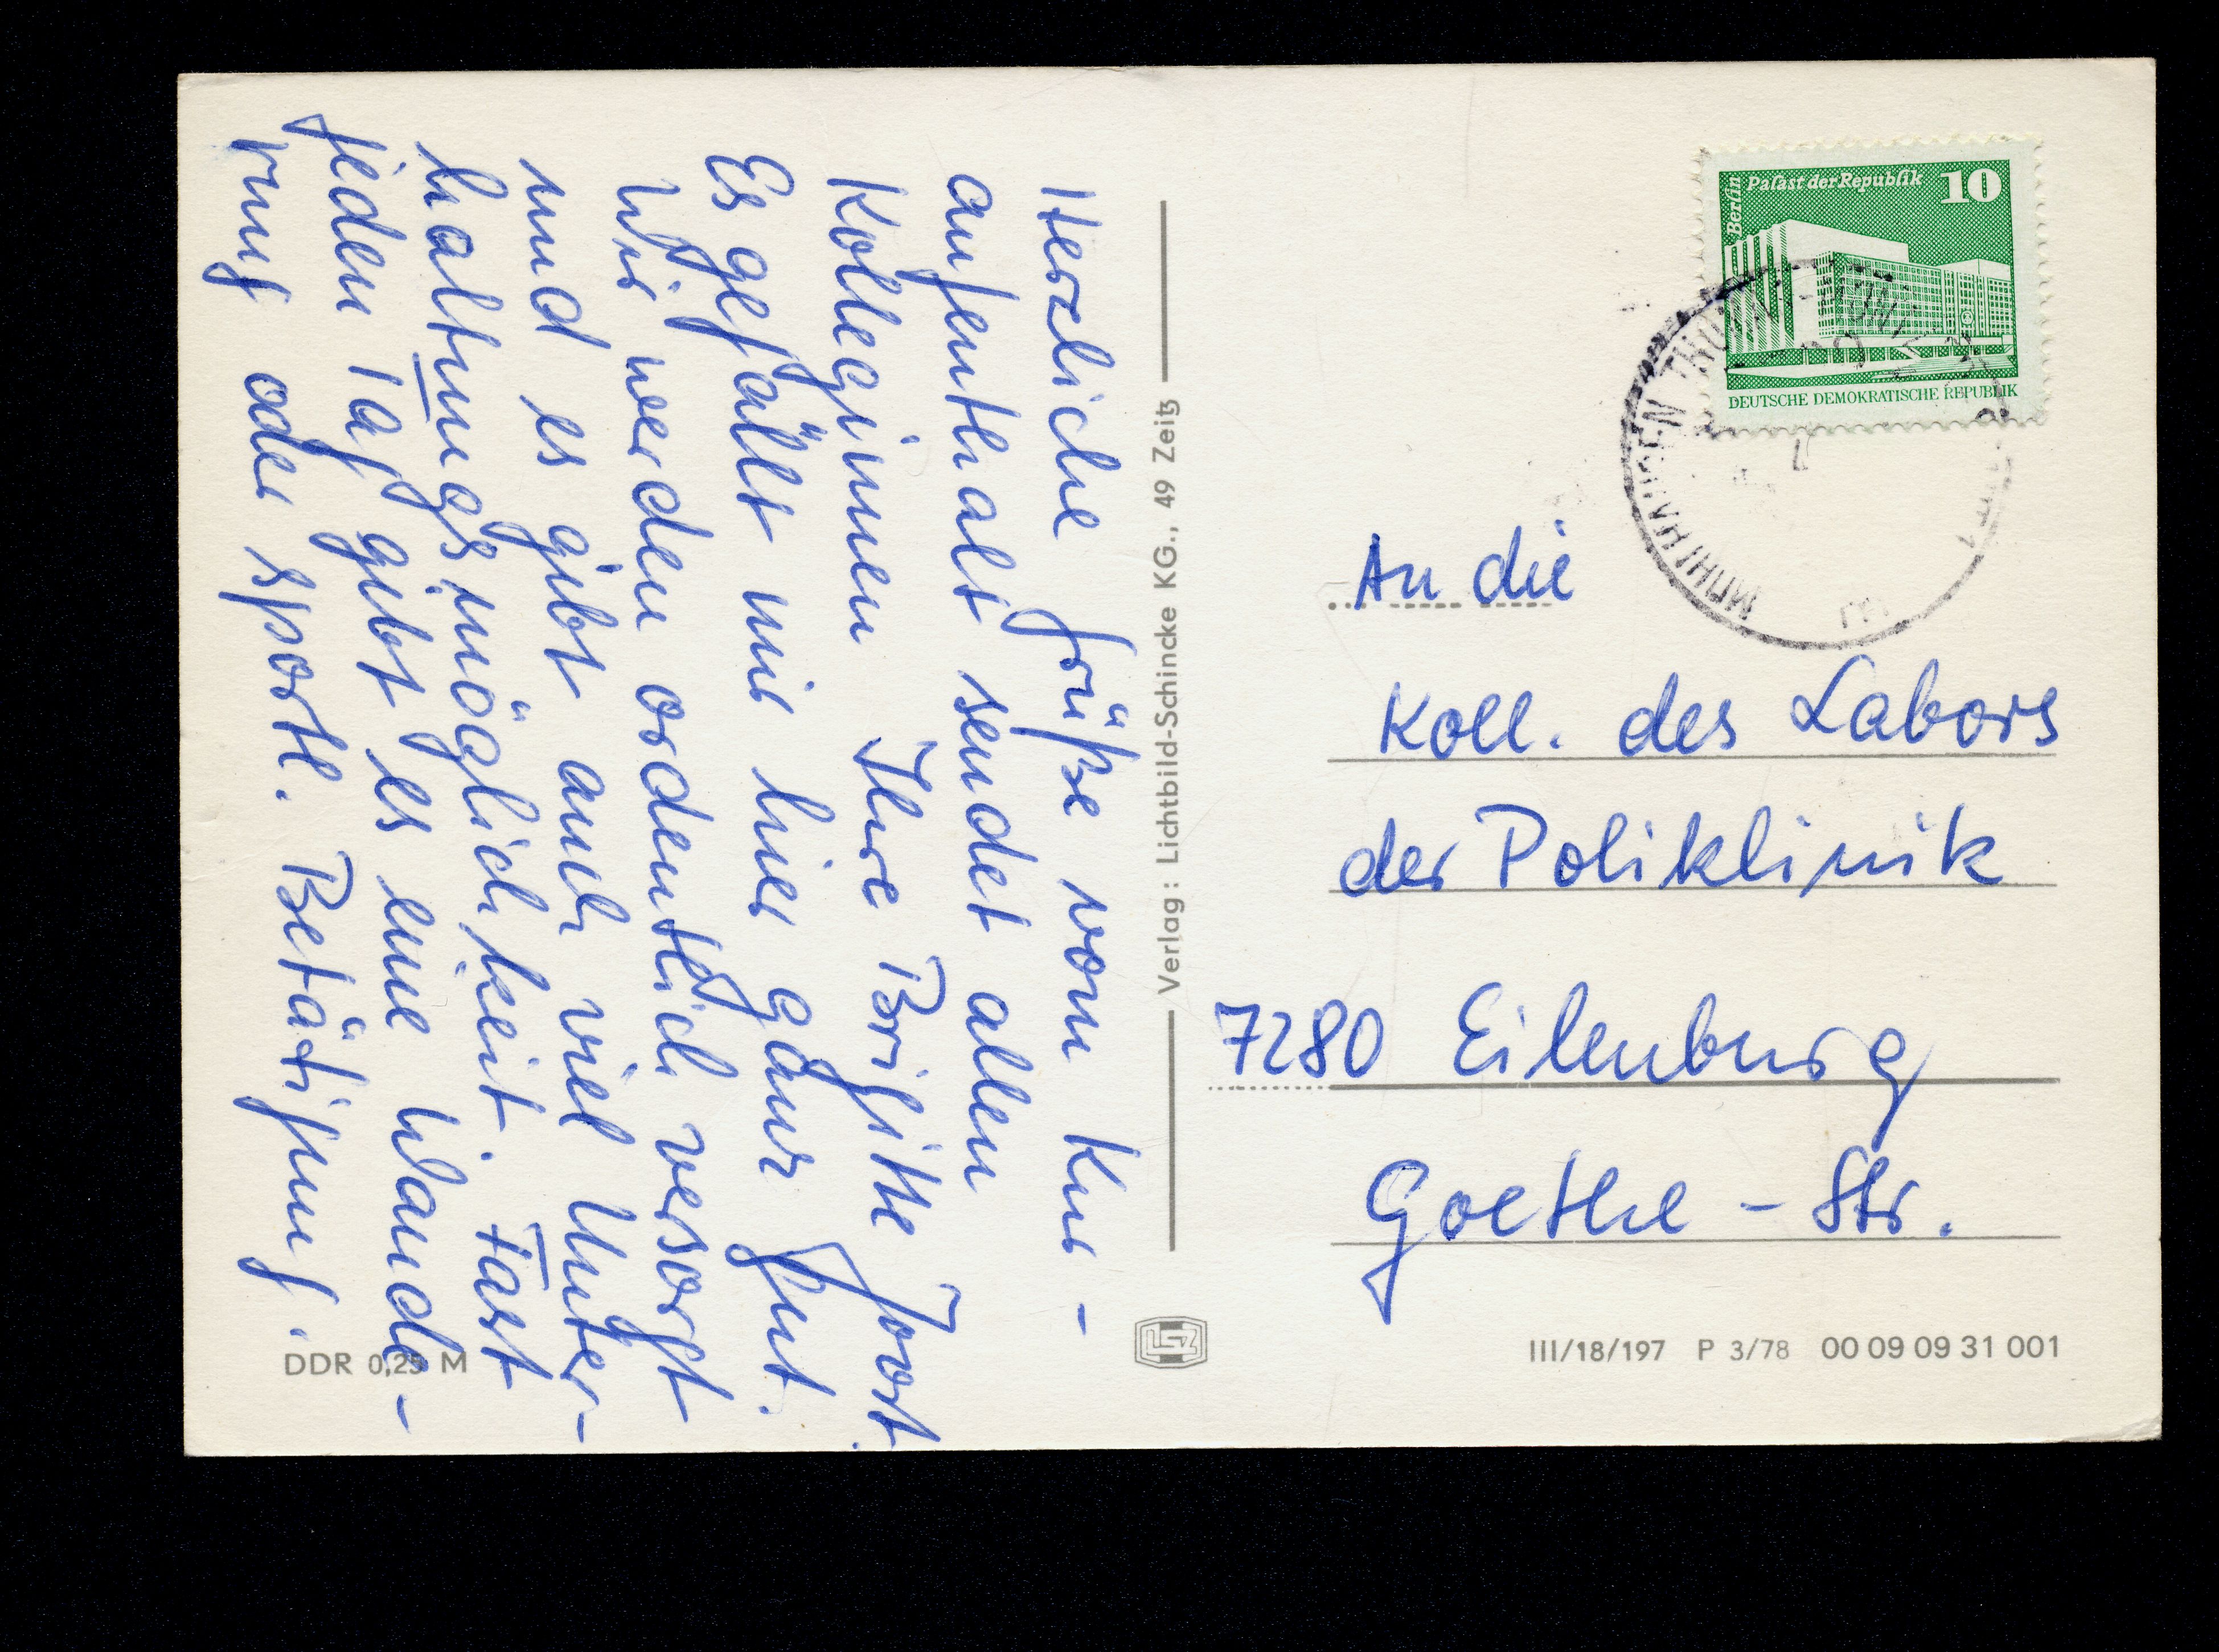 Herzliche Grüße vom Kur-
aufenthalt sendet allen
Kolleginnen Ihre Brigitte
Es gefällt mir hier ganz gut.
Wir werden ordentlich versorgt
und es gibt auch viel Unter-
haltungsmöglichkeit. Fast
jeden Tag gibt es eine Wande-
rung oder sportl. Betätigung.
DDR 0,25 M
Verlag: Lichtbild-Schincke KG., 49 Zeitz
Berlin
Palast der Republik 10
DEUTSCHE DEMOKRATISCHE REPUBLIK
An die
Koll. des Labors
der Poliklinik
7280 Eilenburg
Goethe-Str.
III/18/197 P 3/78 00 09 09 31 001